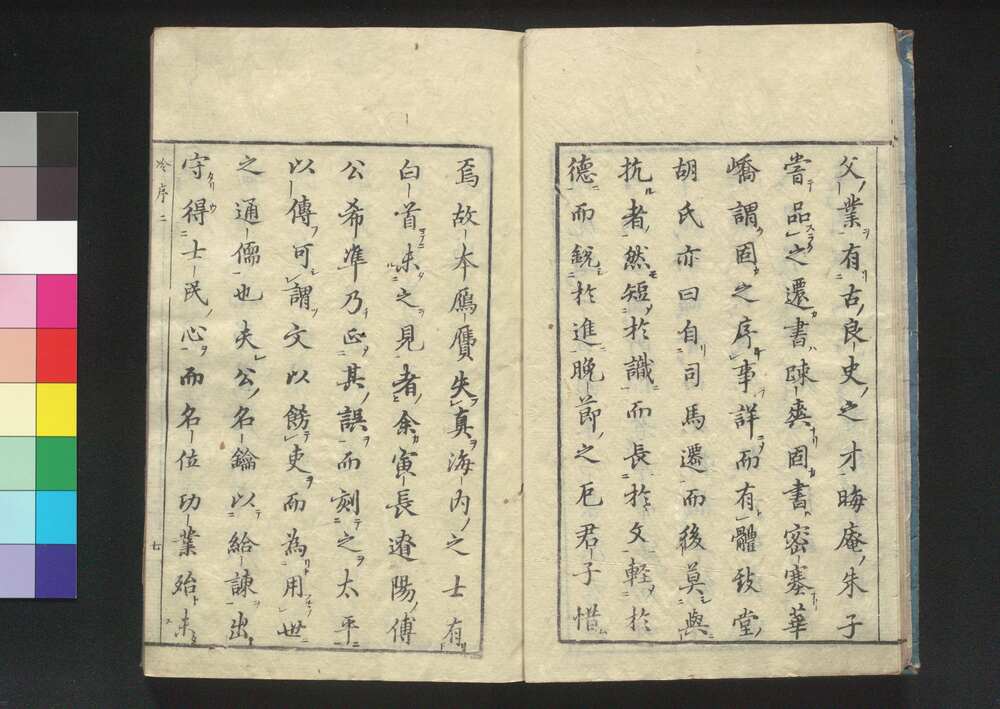 父業有古良史之才晦庵朱子
嘗品之遷書疎爽固書密塞華
嶠謂固之序事詳而有體致堂
胡氏亦曰自司馬遷而後莫與
抗者然短於識而長於文輕於
德而銳於進晚節之厄君子惜
焉故本鴈贋失真海内之士有
白首未之見者余寅長遼陽傅
公希準乃正其誤而刻之太平
以傳可謂文以餝吏而為用世
之通儒也夫公名鑰以給諫出
守得士民心而名位功業殆未
冷序二
七